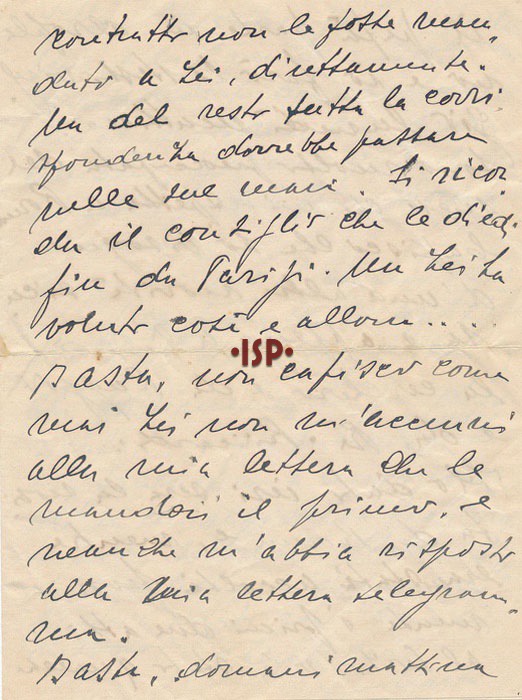 contratto non le fosse man
dato a Lei, direttamente.
Ma del resto tutta la corri
spondenza dovrebbe passare
nelle sue mani. Si ricor
da il consiglio che le diedi
fin da Parigi. Ma Lei ha
voluto così e allora....
•ISP•
Basta, non capisco come
mai Lei non m'accenni
alla mia lettera che le
mandai il primo, e
neanche m'abbia risposto
alla mia lettera telegram
ma.
Basta, domani mattina